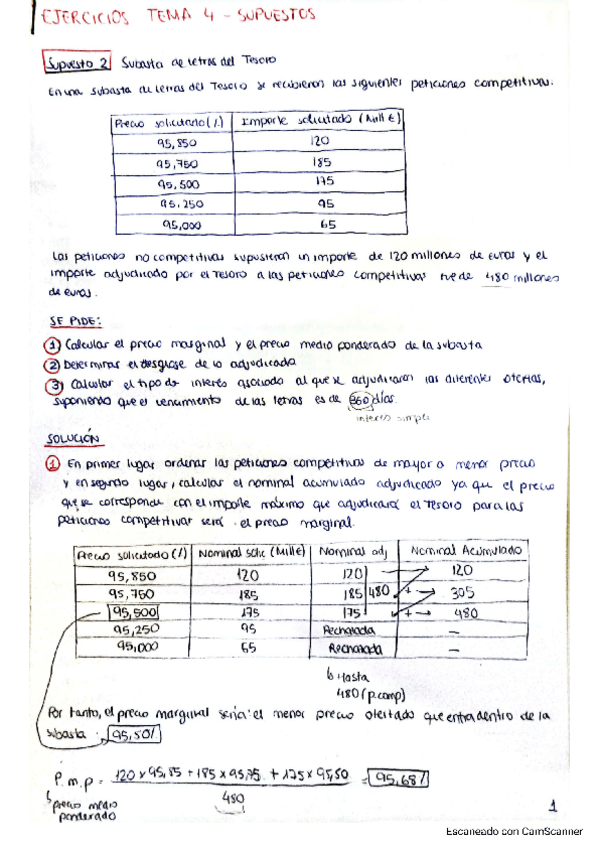 EJERCICIOS TEMA 4 - SUPUESTOS
Supuesto 2 Subasta de letras del Tesoro
En una subasta de letras del Tesoro se recibieron las siguientes peticiones competitivas:
Precio solicitado (%) Importe solicitado (Mill €)
95,850 120
95,750 185
95,500 175
95,250 95
95,000 65
Las peticiones no competitivas supusieron un importe de 120 millones de euros y el
importe adjudicado por el Tesoro a las peticiones competitivas fue de 480 millones
de euros.
SE PIDE:
1) Calcular el precio marginal y el precio medio ponderado de la subasta
2) Determinar el desglose de lo adjudicado
3) Calcular el tipo de interés asociado al que se adjudicaron las diferentes ofertas,
suponiendo que el vencimiento de las letras es de 360 días.
interés simple
SOLUCIÓN
1) En primer lugar ordenar las peticiones competitivas de mayor a menor precio
y en segundo lugar, calcular el nominal acumulado adjudicado ya que el precio
que se corresponde con el importe máximo que adjudicará el Tesoro para las
peticiones competitivas será el precio marginal.
Precio solicitado (%) Nominal solic (Mill€) Nominal adj Nominal Acumulado
95,850 120 120 120
95,750 185 185 480 + 305
95,500 175 175 + 480
95,250 95 Rechazada —
95,000 65 Rechazada —
Hasta
480 (p.comp)
Por tanto, el precio marginal sería: el menor precio ofertado que entra dentro de la
subasta: 95,50%
P.m.p = 120 x 95,85 + 185 x 95,75 + 175 x 95,50 = 95,68%
480
precio medio
ponderado
1
Escaneado con CamScanner